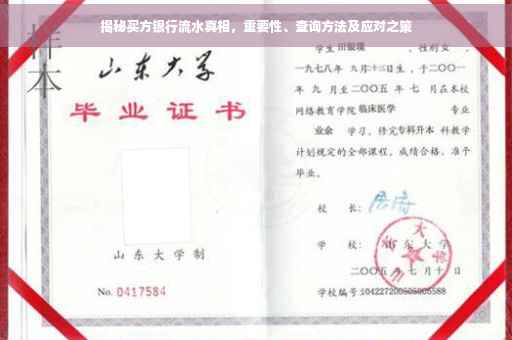 揭秘买方银行流水真相，重要性、查询方法及应对之策
样本
山东大学
毕业证书
山东大学制
No. 0417584
学生 田银瑞 ，性别 女 ，
一九七八年 九月十三日生，于二〇〇一
年 九 月至二〇〇五 年 七 月在本校
网络教育学院 临床医学 专业
业余 学习，修完 专科升本 科教学
计划规定的全部课程，成绩合格，准予
毕业。
校 长：
学 校： 山东大学
二〇〇五 年 七 月 十 日
学校编号:104227200505005588